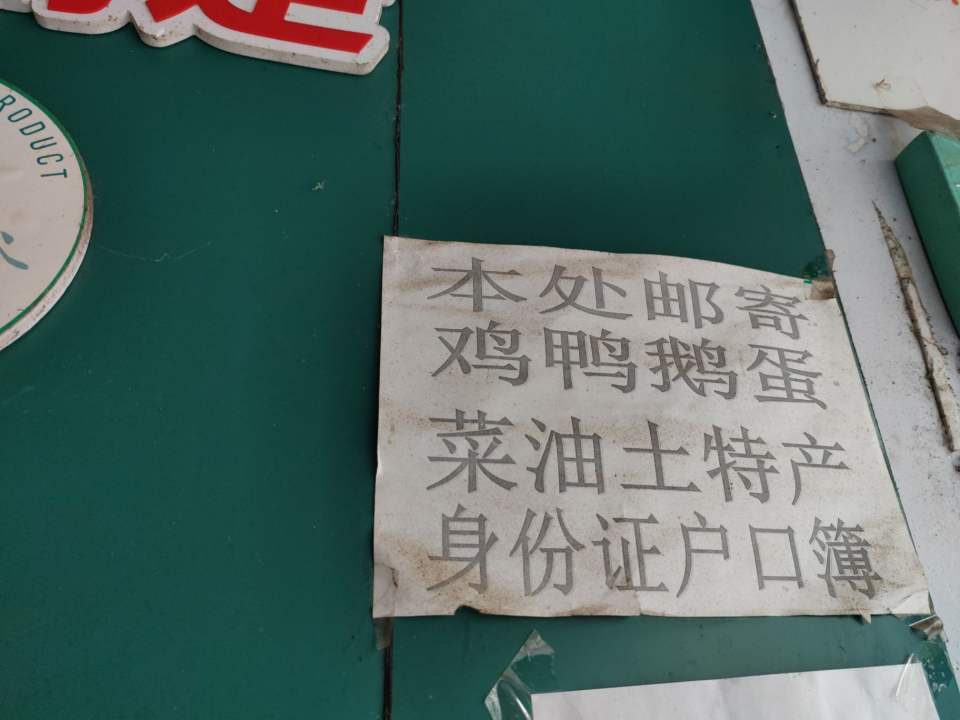 RODUCT
本处邮寄
鸡鸭鹅蛋
菜油土特产
身份证户口簿